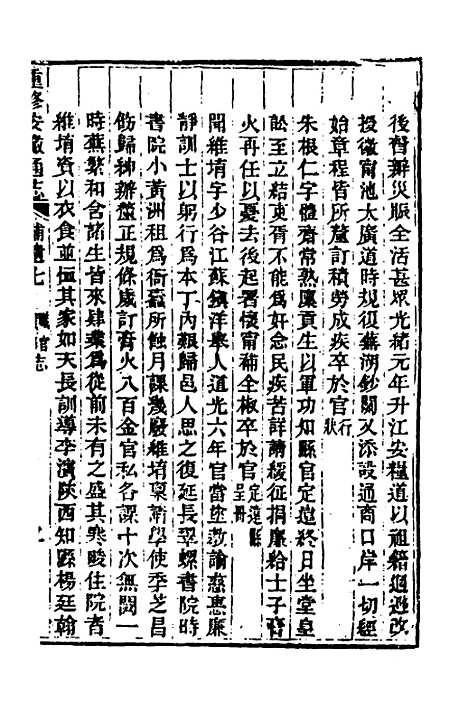 後督辦災賑全活甚眾光緒元年升江安糧道以祖籍迴避改
授徽甯池太廣道時規復蕪湖鈔關又添設通商口岸一切經
始章程皆所釐訂積勞成疾卒於官行狀
朱根仁字體齋常熟廩貢生以軍功知縣官定遠終日坐堂皇
訟至立結吏胥不能為奸念民疾苦詳請緩征捐廉給士子膏
火再任以憂去後起署懷甯補全椒卒於官定遠縣呈冊
聞維堉字少谷江蘇鎮洋舉人道光六年官當塗教諭慈惠廉
靜訓士以躬行為本丁內艱歸邑人思之復延長翠螺書院時
書院小黃洲租為衙蠹所蝕月課幾廢維堉稟請學使季芝昌
飭歸紳辦釐正規條歲訂膏火八百金官私各課十次無閒一
時蕪繁和含諸生皆來肄業為從前未有之盛其寒畯住院者
維堉資以衣食並恤其家如天長訓導李濱陝西知縣楊廷翰
重修安徽通志 補遺七 職官志 九